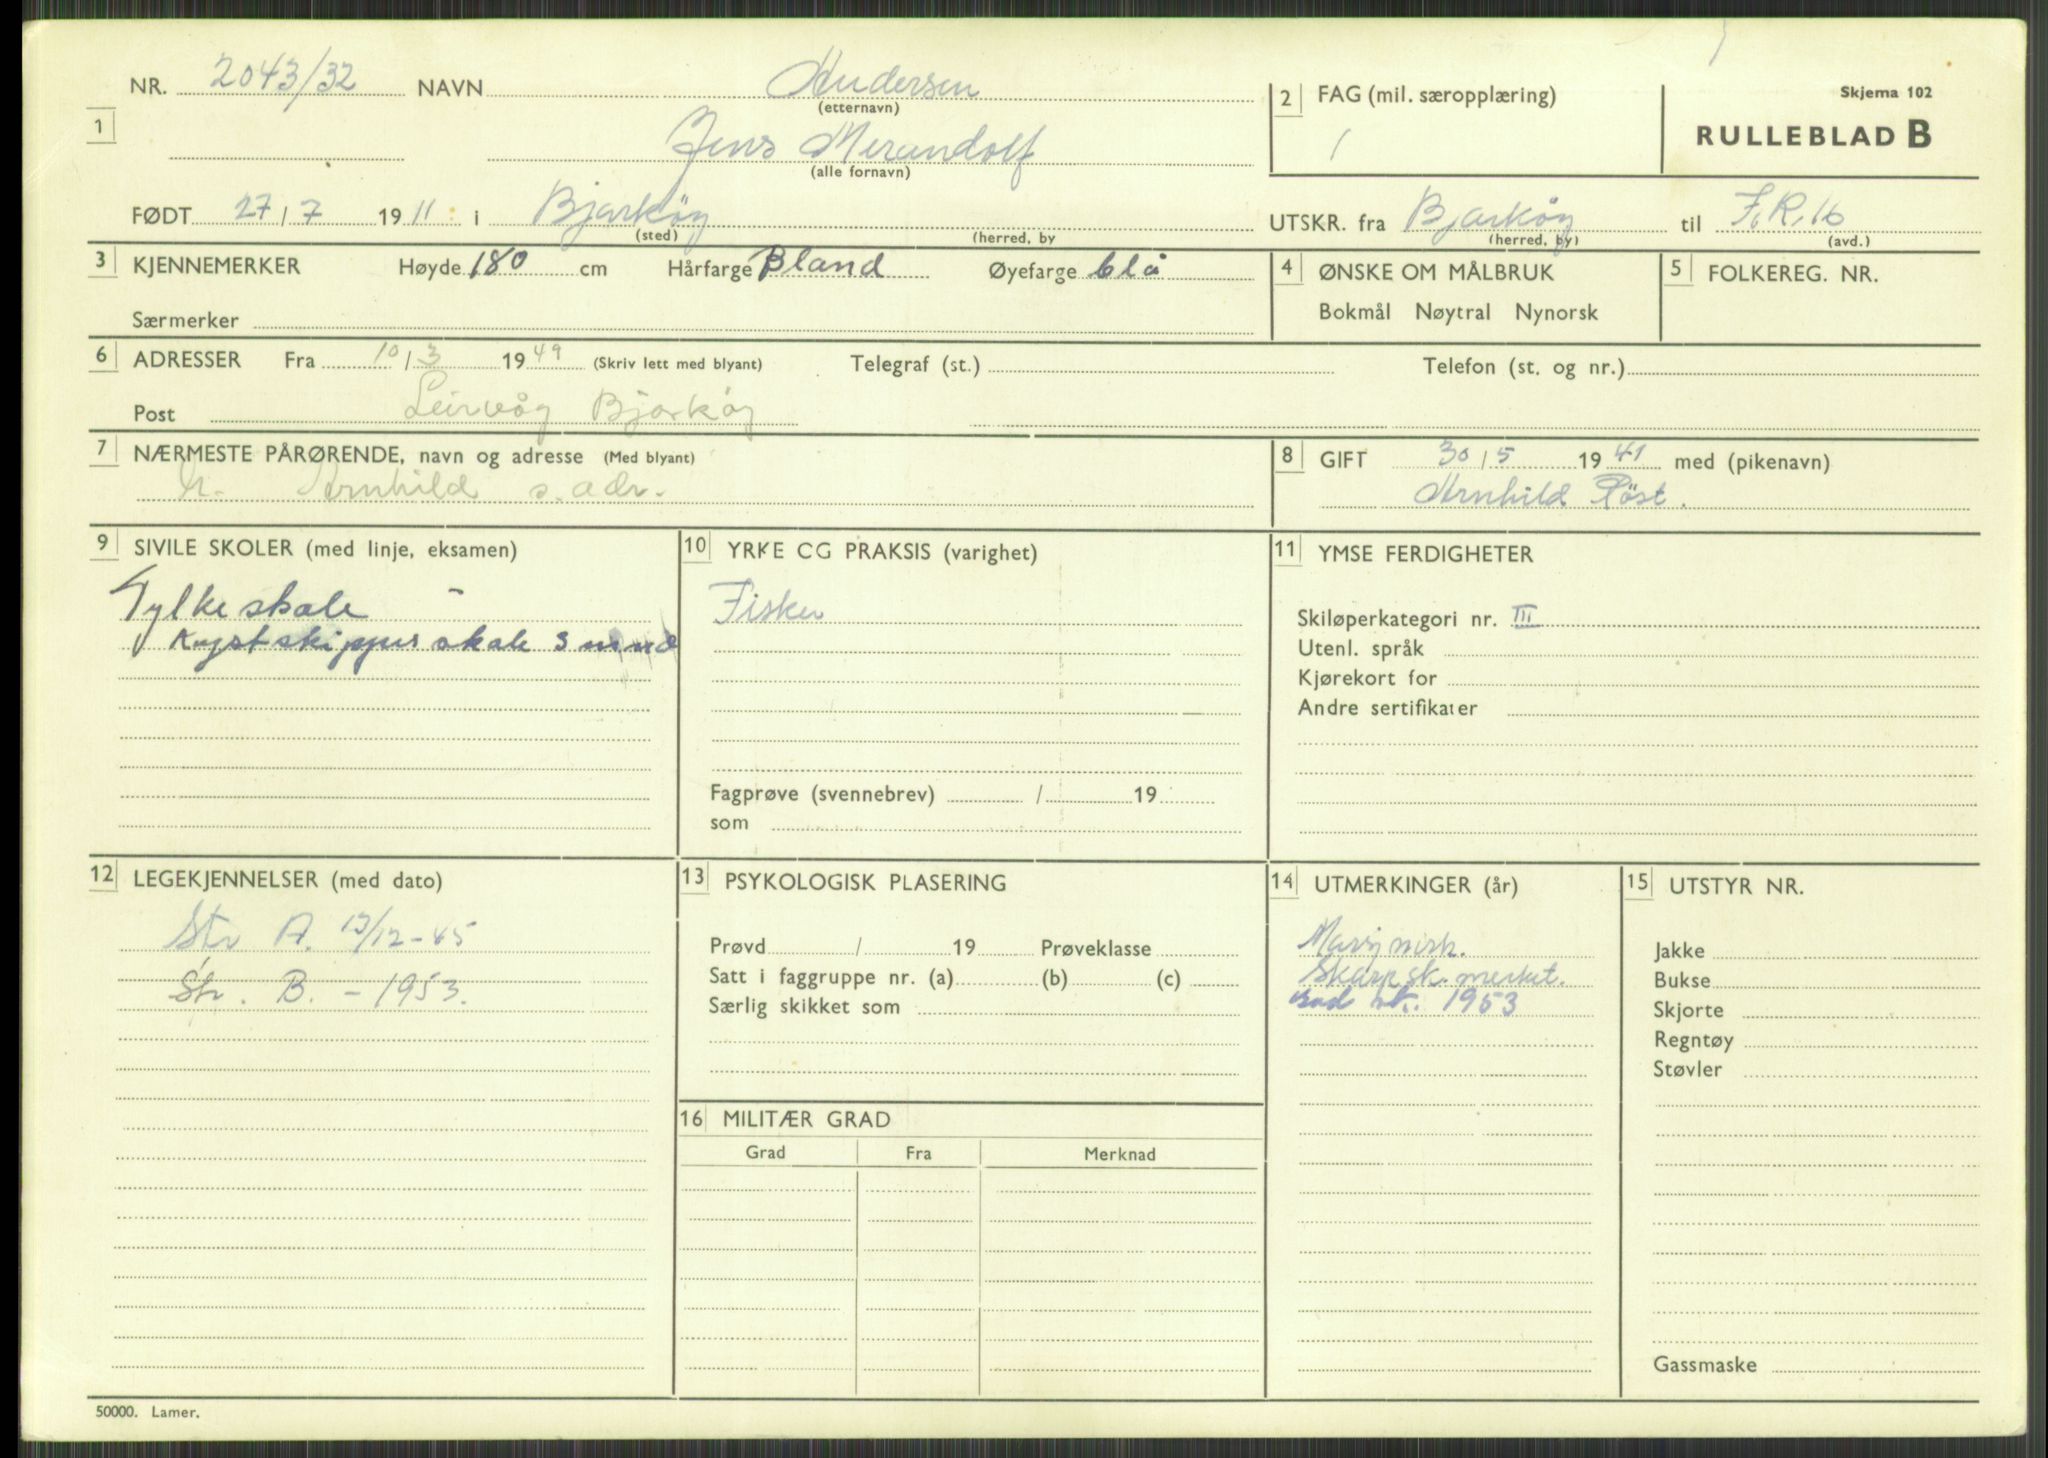 NR. 2043/32 NAVN Andersen
(etternavn)
1
Jens Merandolf
(alle fornavn)
2 FAG (mil. særopplæring)
Skjema 102
RULLEBLAD B
FØDT 27/7 1911 i Bjarkøy
(sted) (herred, by
UTSKR. fra Bjarkøy til F.R.16
(herred, by) (avd.)
3 KJENNEMERKER Høyde 180 cm Hårfarge Bland Øyefarge blå
Særmerker
4 ØNSKE OM MÅLBRUK
Bokmål Nøytral Nynorsk
5 FOLKEREG. NR.
6 ADRESSER Fra 10/3 1949 (Skriv lett med blyant) Telegraf (st.) Telefon (st. og nr.)
Post Leirvåg Bjarkøy
7 NÆRMESTE PÅRØRENDE, navn og adresse (Med blyant)
Arnhild s. adr.
8 GIFT 30/5 1941 med (pikenavn)
Arnhild Røst.
9 SIVILE SKOLER (med linje, eksamen)
Fylkeskale
Kystskipperskale 3
10 YRKE CG PRAKSIS (varighet)
Fisker
Fagprøve (svennebrev) / 19
som
11 YMSE FERDIGHETER
Skiløperkategori nr. III
Utenl. språk
Kjørekort for
Andre sertifikater
12 LEGEKJENNELSER (med dato)
Str A. 13/12-45
Str. B. - 1953.
13 PSYKOLOGISK PLASERING
Prøvd / 19 Prøveklasse
Satt i faggruppe nr. (a) (b) (c)
Særlig skikket som
14 UTMERKINGER (år)
Skarpsk.merket.
1953
15 UTSTYR NR.
Jakke
Bukse
Skjorte
Regntøy
Støvler
Gassmaske
16 MILITÆR GRAD
Grad Fra Merknad
50000. Lamer.